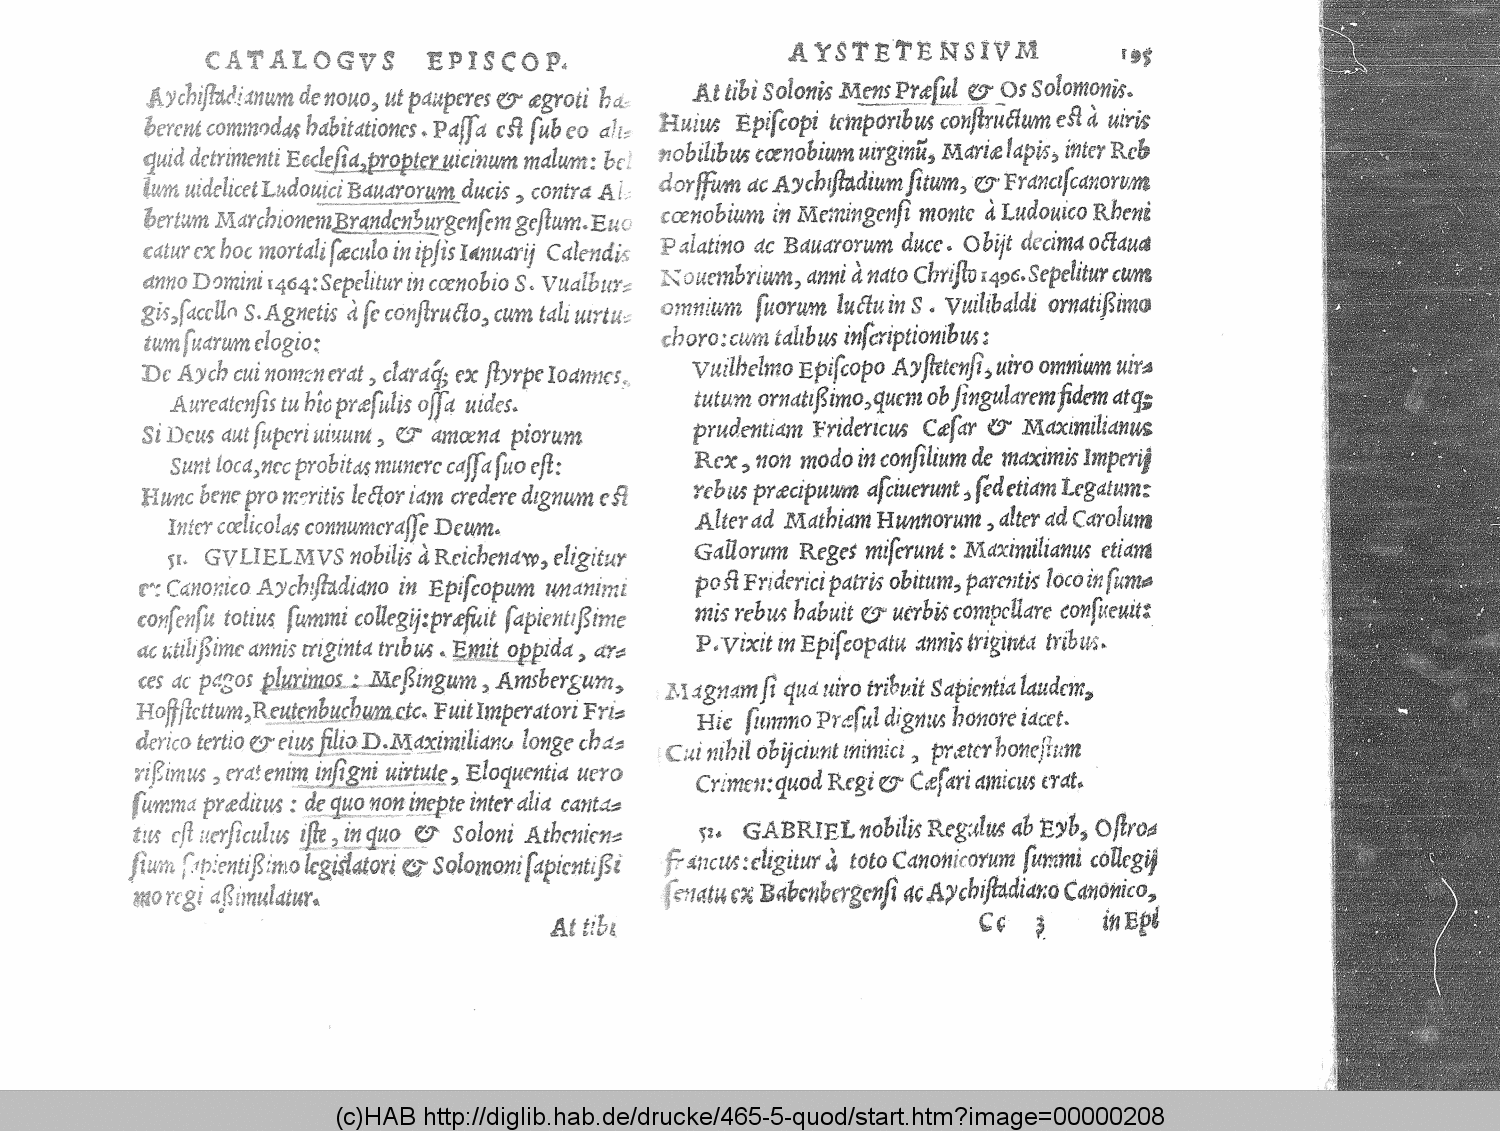 CATALOGVS EPISCOP.
Aychiſtadianum de nouo, ut pauperes & ægroti ha-
berent commodas habitationes. Paſſa eſt ſub eo ali-
quid detrimenti Eccleſia, propter uicinum malum: bel
lum uidelicet Ludouici Bauarorum ducis, contra Al-
bertum Marchionem Brandenburgenſem geſtum. Euo
catur ex hoc mortali ſæculo in ipſis Ianuarij Calendis
anno Domini 1464: Sepelitur in cœnobio S. Vualbur-
gis, ſacello S. Agnetis à ſe conſtructo, cum tali uirtu-
tum ſuarum elogio:
De Aych cui nomen erat, claraq́; ex ſtyrpe Ioannes,
Aureatenſis tu hîc præſulis oſſa uides.
Si Deus aut ſuperi uiuunt, & amœna piorum
Sunt loca, nec probitas munere caſſa ſuo eſt:
Hunc bene pro meritis lector iam credere dignum eſt
Inter cœlicolas connumeraſſe Deum.
51. GVLIELMVS nobilis à Reichenaw, eligitur
ex Canonico Aychiſtadiano in Epiſcopum unanimi
conſenſu totius ſummi collegij: præfuit ſapientißime
ac utilißime annis triginta tribus. Emit oppida, ar-
ces ac pagos plurimos: Meßingum, Amsbergum,
Hoffſtettum, Reutenbuchum etc. Fuit Imperatori Fri-
derico tertio & eius filio D. Maximiliano longe cha-
rißimus, erat enim inſigni uirtute, Eloquentia uero
ſumma præditus: de quo non inepte inter alia canta-
tus eſt uerſiculus iſte, in quo & Soloni Athenien-
ſium ſapientißimo legislatori & Solomoni ſapientißi
mo regi aßimulatur.
At tibi
AYSTETENSIVM 195
At tibi Solonis Mens Præſul & Os Solomonis.
Huius Epiſcopi temporibus conſtructum eſt à uiris
nobilibus cœnobium uirginũ, Mariæ lapis, inter Reb
dorffum ac Aychiſtadium ſitum, & Franciſcanorum
cœnobium in Memingenſi monte à Ludouico Rheni
Palatino ac Bauarorum duce. Obijt decima octaua
Nouembrium, anni à nato Chriſto 1496. Sepelitur cum
omnium ſuorum luctu in S. Vuilibaldi ornatißimo
choro: cum talibus inſcriptionibus:
Vuilhelmo Epiſcopo Ayſtetenſi, uiro omnium uir-
tutum ornatißimo, quem ob ſingularem fidem atq;
prudentiam Fridericus Cæſar & Maximilianus
Rex, non modo in conſilium de maximis Imperij
rebus præcipuum aſciuerunt, ſed etiam Legatum:
Alter ad Mathiam Hunnorum, alter ad Carolum
Gallorum Reges miſerunt: Maximilianus etiam
poſt Friderici patris obitum, parentis loco in ſum-
mis rebus habuit & uerbis compellare conſueuit:
P. Vixit in Epiſcopatu annis triginta tribus.
Magnam ſi qua uiro tribuit Sapientia laudem,
Hic ſummo Præſul dignus honore iacet.
Cui nihil obijciunt inimici, præter honeſtum
Crimen: quod Regi & Cæſari amicus erat.
52. GABRIEL nobilis Regulus ab Eyb, Oſtro-
francus: eligitur à toto Canonicorum ſummi collegij
ſenatu ex Babenbergenſi ac Aychiſtadiano Canonico,
Cc 3 in Epi
(c)HAB http://diglib.hab.de/drucke/465-5-quod/start.htm?image=00000208